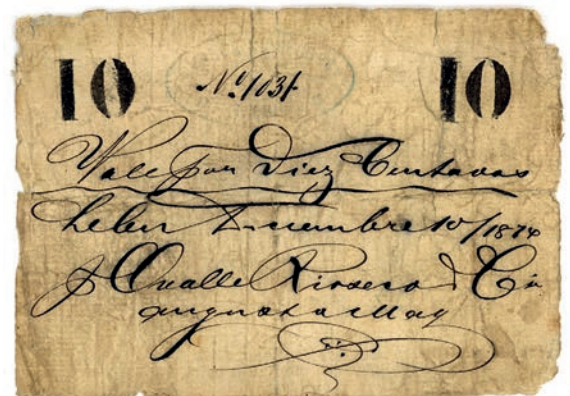 10 10
Vale por Diez Centavos
Diciembre 10/1874
p Ovalle Rivero & Cia